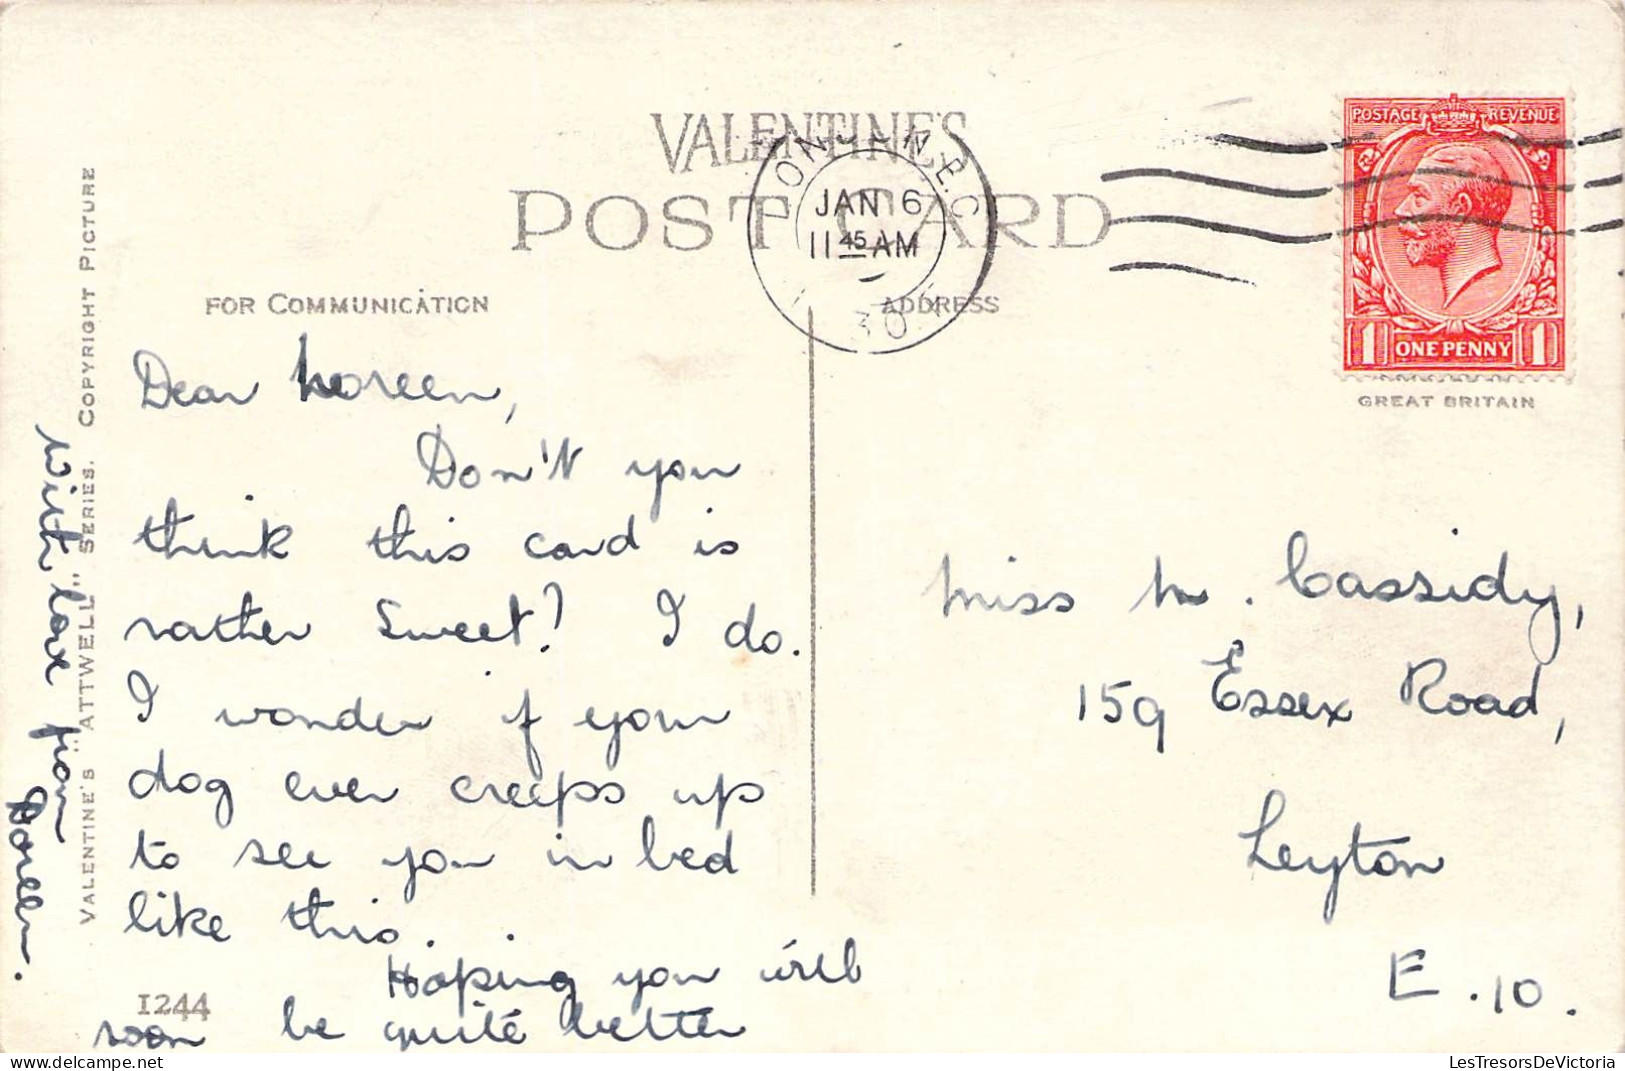 VALENTINE'S
POST CARD
LONDON, E.C.
JAN 6
11 45 AM
30
POSTAGE REVENUE
1 ONE PENNY 1
GREAT BRITAIN
FOR COMMUNICATION
ADDRESS
Dear Noreen,
Don't you
think this card is
rather sweet? I do.
I wonder if your
dog ever creeps up
to see you in bed
like this.
Hoping you will
soon be quite better
With love from
Doreen.
Miss N. Cassidy,
159 Essex Road,
Leyton
E.10.
VALENTINE'S "ATTWELL" SERIES. COPYRIGHT PICTURE
1244
LesTresorsDeVictoria